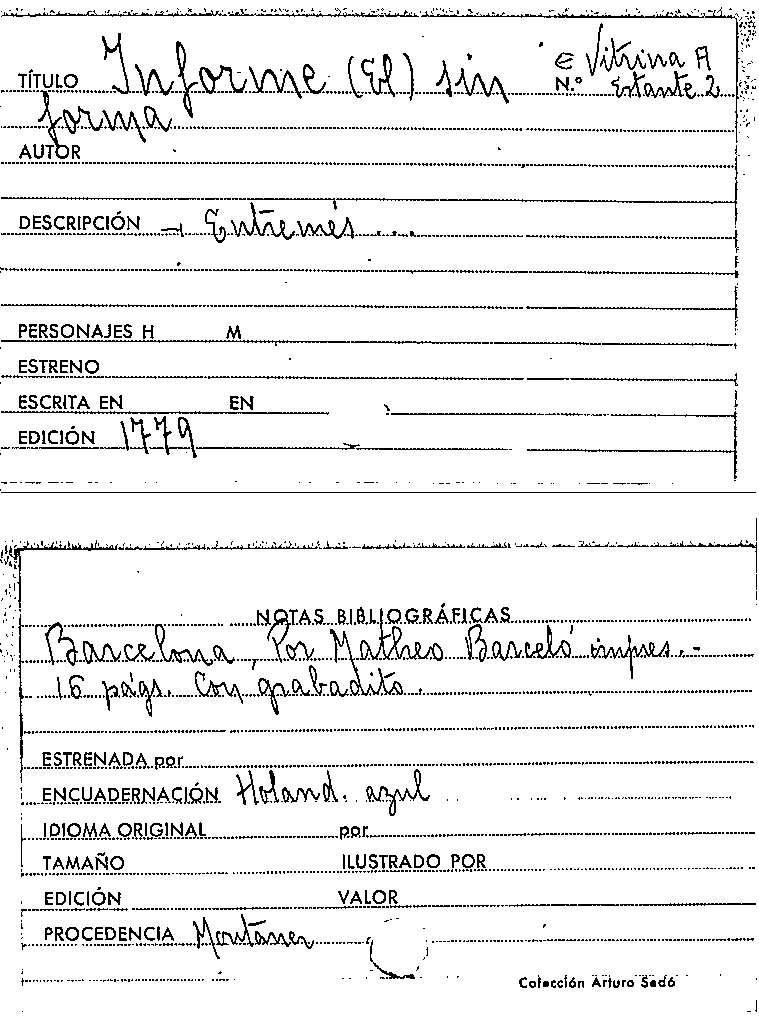 TÍTULO Informe (El) sin E Vitrina A
N.º Estante 2
forma
AUTOR
DESCRIPCIÓN - Entremés ...
PERSONAJES H M
ESTRENO
ESCRITA EN EN
EDICIÓN 1779
NOTAS BIBLIOGRÁFICAS
Barcelona, Por Matheo Barceló impres. -
16 págs. Con grabadito.
ESTRENADA por
ENCUADERNACIÓN Holand. azul
IDIOMA ORIGINAL por
TAMAÑO ILUSTRADO POR
EDICIÓN VALOR
PROCEDENCIA Montaner
Colección Arturo Sedó